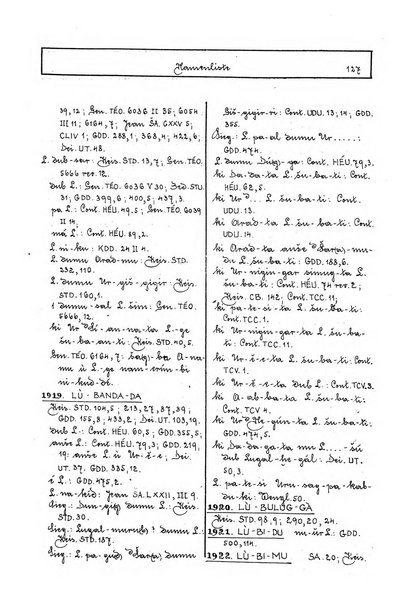 Namenliste 127
39,12; Gen. TÉO. 6036 II 35; 6054
III 11; 6164,7; Jean ŠA. CXXV 5;
CLIV 1; GDD. 288,1; 368,4; 422,6;
Dei. UT. 48.
L. dub-sar: Reis. STD. 13,7; Gen. TÉO.
5666 rev. 12.
dub L.: Gen. TÉO. 6036 V 30; Bed. STU.
31; GDD. 399,6; 400,5; 437,3.
pa L.: Cont. HÉU. 49,5; Gen. TÉO. 6039
II 14.
má L.: Cont. HÉU. 59,2.
L. ni-ku: KDD. 24 II 4.
L. dumu Arad-mu: Reis. STD.
232,110.
L. dumu Ur-giš-gigir: Reis.
STD. 160,1.
1 dumu-sal L. šim: Gen. TÉO.
5666,12.
ki Ur an-na-ta L.-ge
šu-ba-an-ti: Cont. HÉU. 40,5.
Gen. TÉO. 6164,7: A-na-
mu ù L.-ge nam-erim-bi
ni-kud-dé.
1919. LÙ-BANDA-DA
Reis. STD. 104,5; 213, 27, 37, 39;
GDD. 155,8; 433,2; Dei. UT. 103,19.
dub L.: Cont. HÉU. 60,5; GDD. 355,5;
anše L.: Cont. HÉU. 79,3; GDD. 219,
19; anše L. ù Ur-è-e; Dei.
UT. 37. GDD. 335,12.
é L.: GDD. 475,2.
L. na-kid: Jean ŠA. LXXII, III 9.
Sieg.: dumu L.: Reis.
STD. 30.
Sieg.: dumu L.:
Reis. STD. 137.
Sieg.: L. pa- dumu
Giš-gigir-ri: Cont. UDU. 13; 14; GDD.
355.
Sieg.: L. pa-al dumu Ur.....:
GDD. 474.
L. dumu : Cont. HÉU. 79,3.
ki Da-da-ta L. šu-ba-ti: Cont.
HÉU. 62,5.
ki Ur-M...... L. šu-ba-ti: Cont.
UDU. 13.
ki Arad-ta L. šu-ba-ti: Cont.
UDU. 14.
ki Arad-ta anše
L. šu-ba-ti: GDD. 188,6.
ki Ur-nigin-gar simug-ta L.
šu-ba-ti: Cont. HÉU. 74 rev. 2;
Reis. CB. 142; Cont. TCC. 11;
ki pa-te-si-ta L. šu-ba-ti:
Cont. TCC. 1.
ki Ur-nigin-gar-ta L. šu-ba-ti:
Cont. TCC. 11.
ki Ur-è-e-ta L. šu-ba-ti: Cont.
TCV. 1.
ki Ur-è-e-ta dub L.: Cont. TCV. 3.
ki Al-la-ta L. šu-ba-ti:
Cont. TCV. 4.
ki Ur L. šu-ba-ti:
GDD. 474,5.
ki Da-da-ga-ta mu L....-šù
dub Lugal-he-gál: Dei. UT.
50,3.
L. pa-te-si Uru-sag-pa-kab-
du-ki: Wengl. 50.
1920. LÙ-BULUG-GÀ
Reis. STD. 98,9; 290, 20, 24.
1921. LÙ-BI-DU mu-ùr L.: GDD.
500,114.
1922. LÙ-BI-MU SA. 20; Reis.